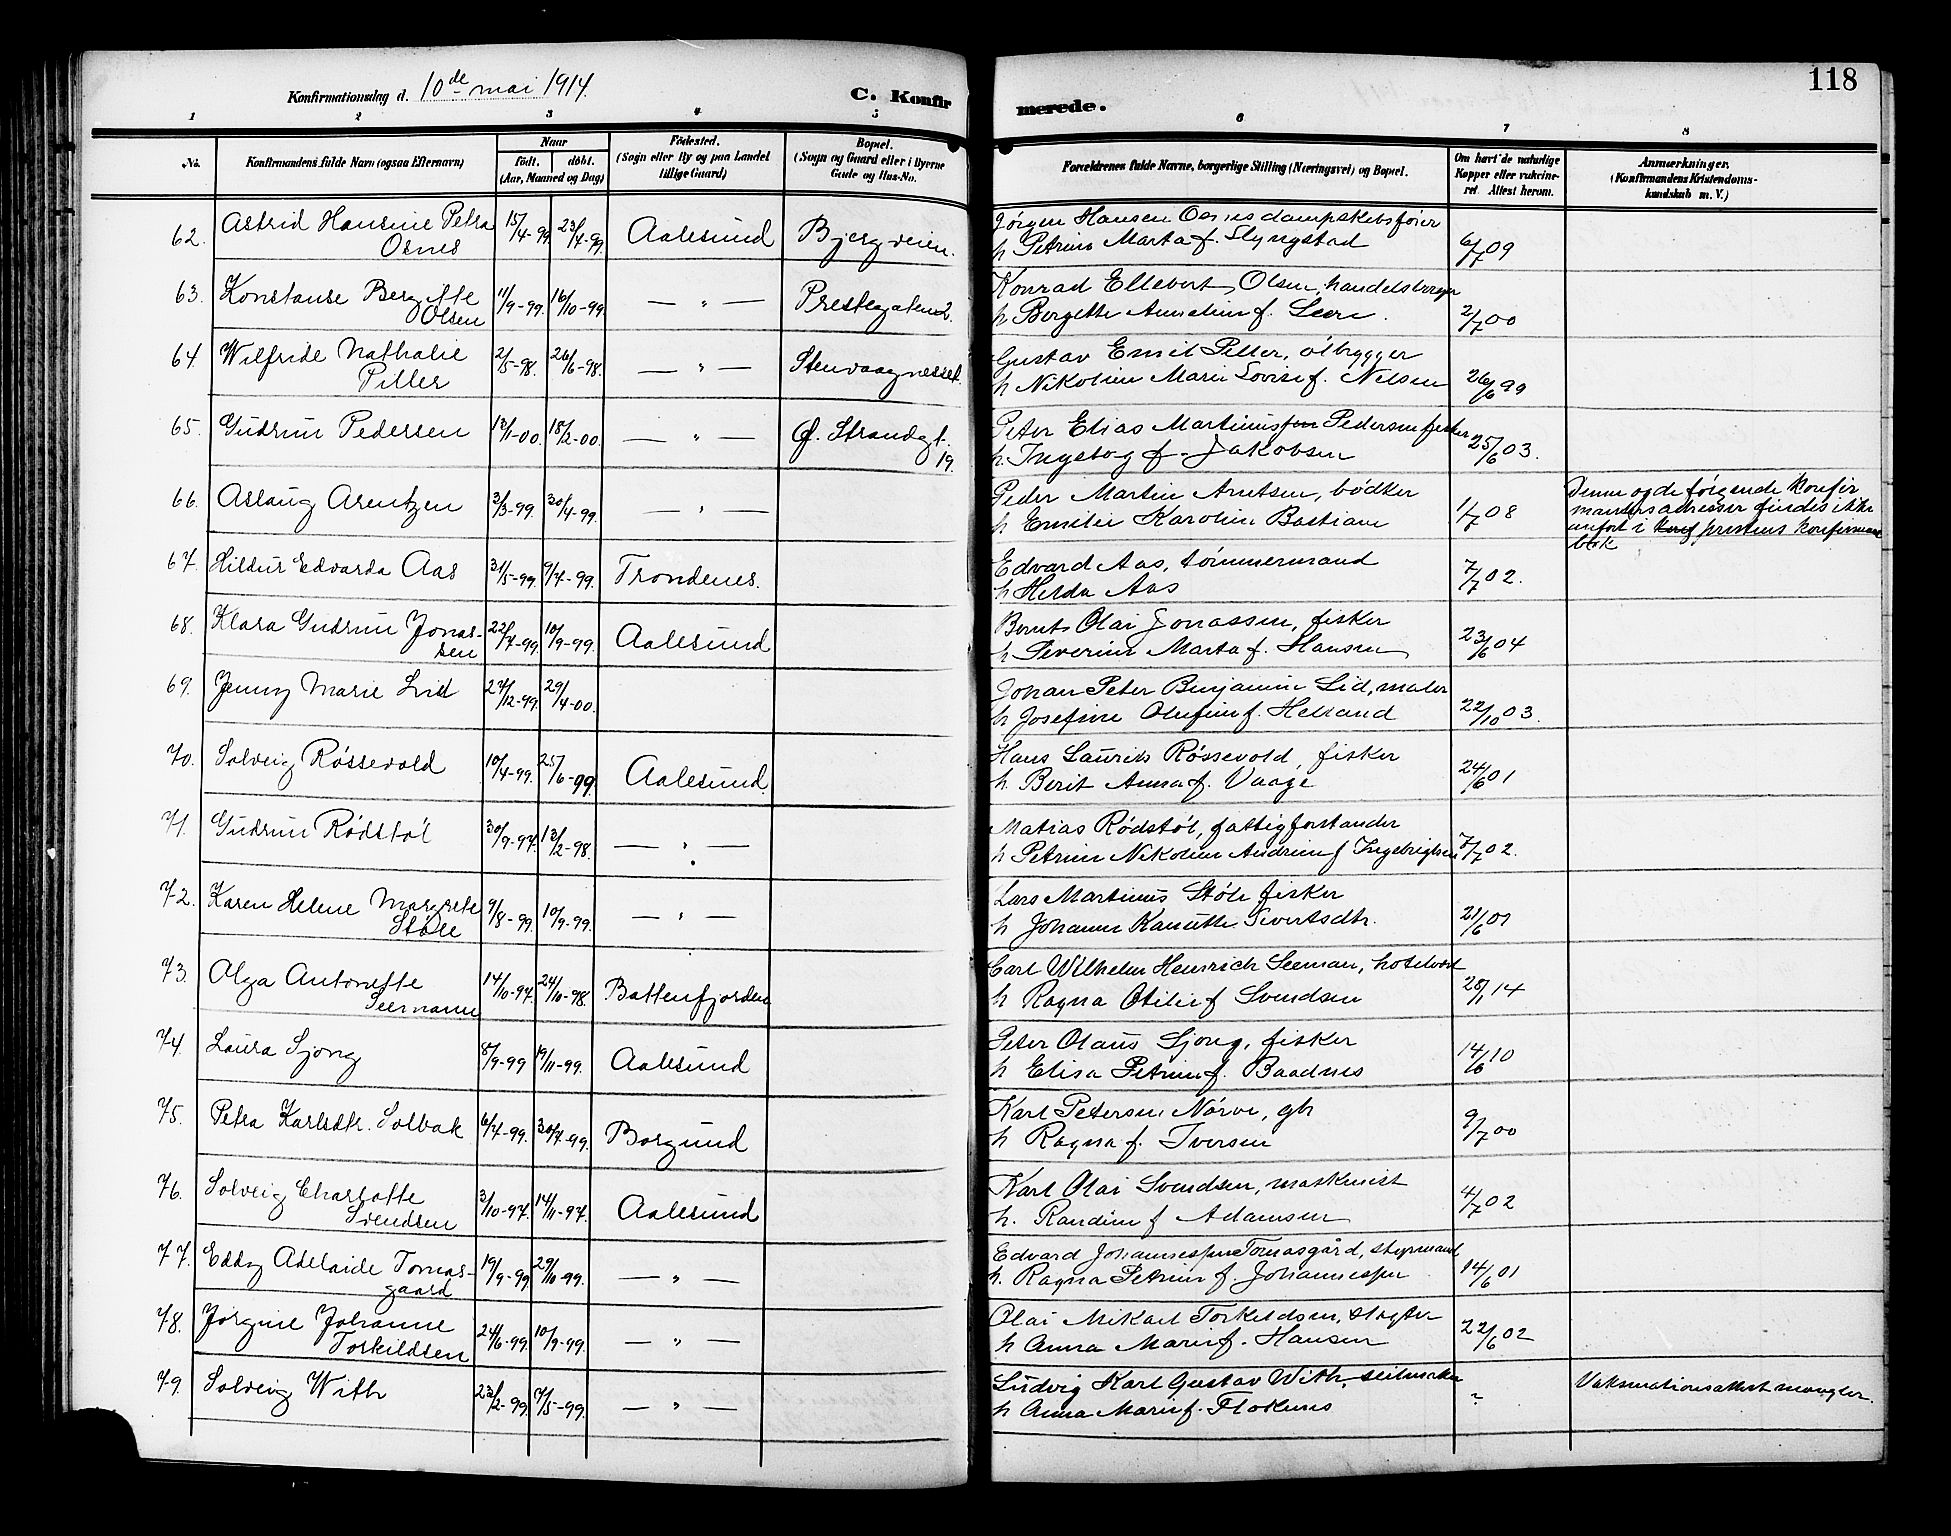 118
Konfirmationsdag d. 10de mai 1914.
C. Konfirmerede.
1 2 3 4 5 6 7 8
No.
Konfirmandens fulde Navn (ogsaa Efternavn)
Naar
født. døbt.
(Aar, Maaned og Dag)
Fødested.
(Sogn eller By og paa Landet
tillige Gaard)
Bopæl.
(Sogn og Gaard eller i Byerne
Gade og Hus-No.
Forældrenes fulde Navne, borgerlige Stilling (Næringsvei) og Bopæl.
Om havt de naturlige
Kopper eller vakcine-
ret. Attest herom.
Anmærkninger.
(Konfirmandens Kristendoms-
kundskab m. V.)
62. Astrid Hansine Petra Osnes 15/4-99 23/4-99 Aalesund Bjergveien. Jørgen Hansen Osnes dampskibsfører
h Petrine Marta f. Slyngstad 6/7 09
63. Konstanse Bergitte Olsen 11/9-99. 16/10-99 — " — Prestegaten 2. Konrad Ellebert Olsen, handelsborger
h Bergette Anneline f. 2/7 00
64. Wilfride Nathalie Piller 2/5-98. 26/6-98. — " — Stenvaagnesset. Gustav Emil Piller, ølbrygger
h Nikoline Marie Lovise f. Nelsen 26/6 99
65. Gudrun Pedersen 12/1-00. 18/2-00. — " — Ø. Strandgt. 19. Peter Elias Martinus Pedersen fisker
h. Ingeborg f. Jakobsen 25/6 03.
66. Aslaug Arentzen 3/3-99. 30/4-99. — " — Peder Martin Arntsen, bødker
h Emilie Karoline Bastians 1/7 08 Denne og de følgende konfir
manders adresser findes ikke
anført i prestens konfirmant
bok
67. Hildur Edvarda Aas 31/5-99. 9/7-99. Trondenes. Edvard Aas, tømmermand
h Helda Aas 7/7 02.
68. Klara Gudrun Jonas-
sen 22/7-99 10/9-99. Aalesund Bernt Olai Jonassen, fisker
h Severine Marta f. Hansen 23/6 04
69. Jenny Marie Lid 27/12-99. 29/4-00. Johan Peter Benjamin Lid, maler
h Josefine Olufine f. Helland 22/10 03.
70. Solveig Røssevold 10/4-99. 25/6-99. Aalesund. Hans Laurits Røssevold, fisker
h Berit Anna f. Vaage 24/6 01
71. Gudrun Rødstøl 30/9-97. 13/2-98. — " — Matias Rødstøl, fattigforstander
h Petrine Nikoline Andrine f Ingebrigtsen 7/7 02.
72. Karen Helene Margrete
Støle 9/8-99. 10/9-99. — " — Lars Martinus Støle fisker
h Johanne Kanutte Sivertsdtr. 21/6 07
73. Olga Antonette
Seemann 14/10-97. 24/10-98. Battenfjorden Carl Wilhelm Heinrich Seeman, hotelvært
h Ragna Otilie f Svendsen 28/1 14
74. Laura Sjong 8/9-99 19/11-99. Aalesund Peter Olaus Sjong, fisker
h Elisa Petrine f. Baadnes 14/6 10
75. Petra Karlsdtr. Solbak 6/7-99. 30/7-99 Borgund Karl Petersen Nørve, gbr
h Ragna f. Iversen 9/7 00
76. Solveig Charlotte
Svendsen 3/10-97. 14/11-97. Aalesund Karl Olai Svendsen, maskinist
h. Randine f Adamsen 4/7 02
77. Eddy Adelaide Tomas-
gaard 19/9-99 29/10-99. — " — Edvard Johannessen Tomasgård, styrmand
h. Ragna Petrine f. Johannessen 14/6 01
78. Jørgine Johanne
Torkildsen 24/6-99. 10/9-99. — " — Olai Mikael Torkildsen, slagter
h Anna Marie f. Hansen 22/6 02
79. Solveig With 23/2-99. 7/5-99. — " — Ludvig Karl Gustav With, seilmaker
h Anna Marie f. Floknes ~ Vaksinationsattest mangler.